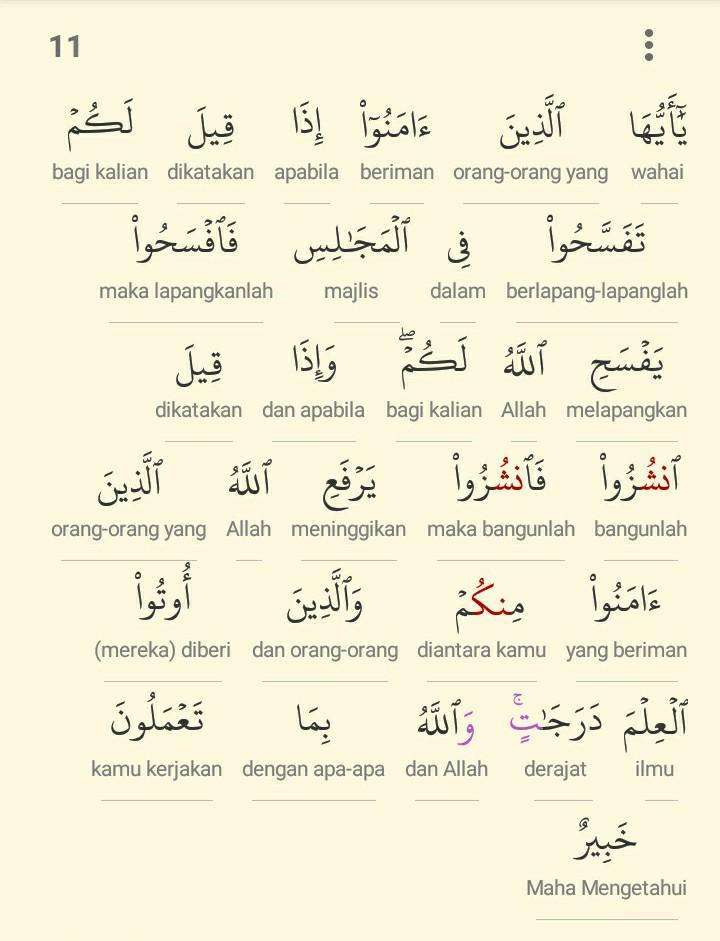 11
يَٰٓأَيُّهَا ٱلَّذِينَ ءَامَنُوٓا۟ إِذَا قِيلَ لَكُمْ
bagi kalian dikatakan apabila beriman orang-orang yang wahai
تَفَسَّحُوا۟ فِى ٱلْمَجَٰلِسِ فَٱفْسَحُوا۟
maka lapangkanlah majlis dalam berlapang-lapanglah
يَفْسَحِ ٱللَّهُ لَكُمْ ۖ وَإِذَا قِيلَ
dikatakan dan apabila bagi kalian Allah melapangkan
ٱنشُزُوا۟ فَٱنشُزُوا۟ يَرْفَعِ ٱللَّهُ ٱلَّذِينَ
orang-orang yang Allah meninggikan maka bangunlah bangunlah
ءَامَنُوا۟ مِنكُمْ وَٱلَّذِينَ أُوتُوا۟
(mereka) diberi dan orang-orang diantara kamu yang beriman
ٱلْعِلْمَ دَرَجَٰتٍ ۚ وَٱللَّهُ بِمَا تَعْمَلُونَ
kamu kerjakan dengan apa-apa dan Allah derajat ilmu
خَبِيرٌ
Maha Mengetahui